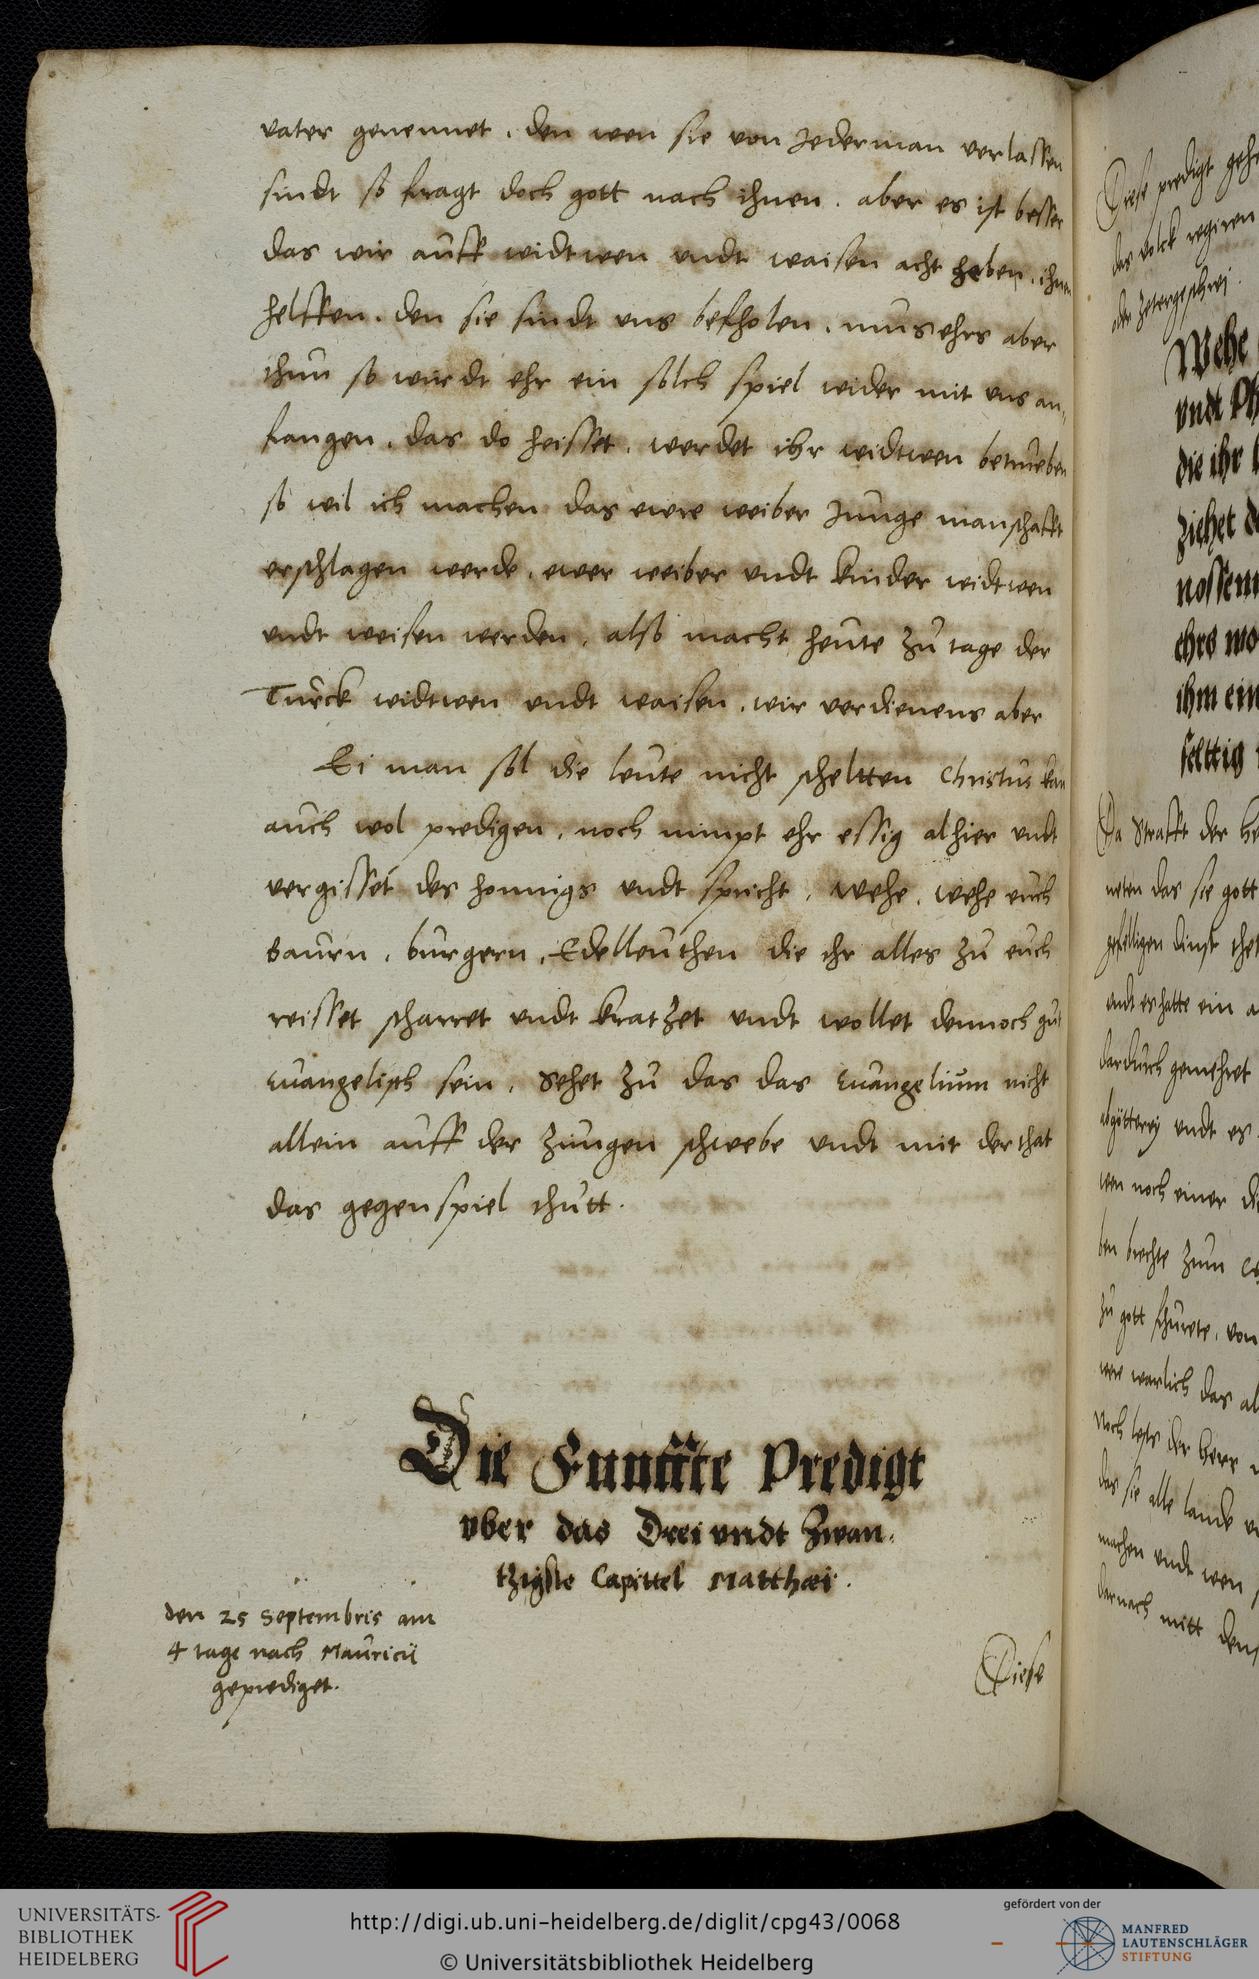 vater genennet. den wen sie von Jederman verlassen
sindt so fragt doch gott nach ihnen. aber es ist besser
das wir auff widtwen undt waisen acht haben. ihnen
helffen. den sie sindt uns befholen. mus ehrs aber
thun so wurdt ehr ein solch spiel wider mit uns an,
fangen. das do heisset. werdet ihr widtwen betrueben
so wil ich machen das ewre weiber Junge manschafft
erschlagen werde. ewer weiber undt kinder widtwen
undt weisen werden. also macht heute zu tage der
Turck widtwen undt waisen. wir verdienens aber
Ei man sol die leute nicht scheltten Christus kan
auch wol predigen. noch nimpt ehr essig alhier undt
vergisset des honnigs undt spricht. wehe. wehe euch
Baurn. burgern. Edelleuthen die ihr alles zu euch
reisset scharret undt kratzet undt wollet dennoch gut
Euangelisch sein. Sehet zu das das Euangelium nicht
allein auff der zungen schwebe undt mit der that
das gegenspiel thutt.
Die Funffte Predigt
vber das Drei vndt Zwan,
tzigste Capittel Matthaei.
den 25 Septembris am
4 tage nach Mauricii
geprediget.
Diese
Diese predigt
das volck regiren
oder Zetergeschrei.
Wehe
vndt
die ihr
ziehet
ehrs
ihm ein
felttig
Da strafft der
neten das sie gott
gefelligen dinst
undt es hatte ein
dardurch gemehret
abgötterej undt es
wen noch einer
ben brechte zum
zu gott fhurete. von
were warlich das
Noch der herr
das sie alle lande
machen undt wen
darnach mitt
UNIVERSITÄTS-
BIBLIOTHEK
HEIDELBERG
http://digi.ub.uni-heidelberg.de/diglit/cpg43/0068
© Universitätsbibliothek Heidelberg
gefördert von der
MANFRED
LAUTENSCHLÄGER
STIFTUNG